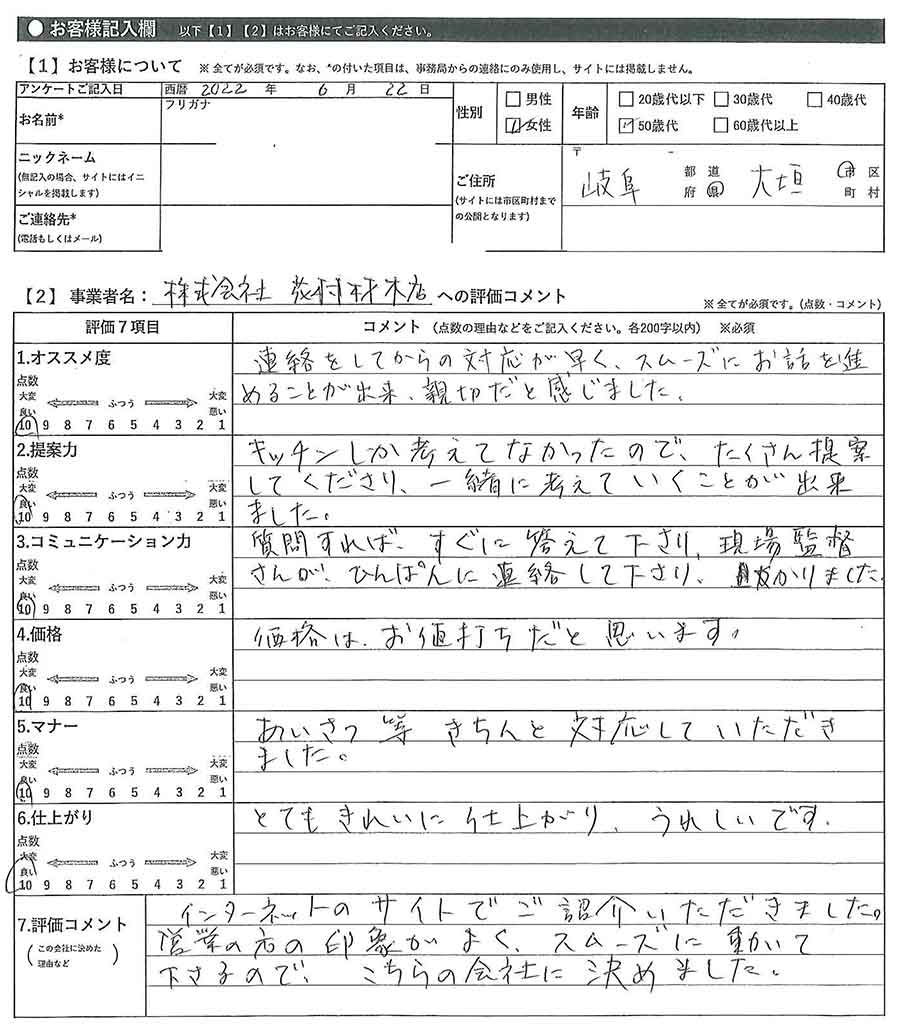 ● お客様記入欄 以下【1】【2】はお客様にてご記入ください。
【1】お客様について ※ 全てが必須です。なお、*の付いた項目は、事務局からの連絡にのみ使用し、サイトには掲載しません。
アンケートご記入日 西暦 2022 年 6 月 22 日
お名前* フリガナ
性別 □男性 ☑女性
年齢 □20歳代以下 □30歳代 □40歳代
☑50歳代 □60歳代以上
ニックネーム
(無記入の場合、サイトにはイニ
シャルを掲載します)
ご住所
(サイトには市区町村まで
の公開となります)
〒 -
岐阜 都道府県 大垣 市区町村
ご連絡先*
(電話もしくはメール)
【2】事業者名: 株式会社 茂村材木店 への評価コメント
※ 全てが必須です。(点数・コメント)
評価7項目 コメント (点数の理由などをご記入ください。各200字以内) ※必須
1.オススメ度
点数
大変良い ふつう 大変悪い
10 9 8 7 6 5 4 3 2 1
連絡をしてからの対応が早く、スムーズにお話を進
めることが出来、親切だと感じました。
2.提案力
点数
大変良い ふつう 大変悪い
10 9 8 7 6 5 4 3 2 1
キッチンしか考えてなかったので、たくさん提案
してくださり、一緒に考えていくことが出来
ました。
3.コミュニケーション力
点数
大変良い ふつう 大変悪い
10 9 8 7 6 5 4 3 2 1
質問すれば、すぐに答えて下さり、現場監督
さんが、ひんぱんに連絡して下さり、助かりました
4.価格
点数
大変良い ふつう 大変悪い
10 9 8 7 6 5 4 3 2 1
価格は、お値打ちだと思います。
5.マナー
点数
大変良い ふつう 大変悪い
10 9 8 7 6 5 4 3 2 1
あいさつ等きちんと対応していただき
ました。
6.仕上がり
点数
大変良い ふつう 大変悪い
10 9 8 7 6 5 4 3 2 1
とてもきれいに仕上がり、うれしいです。
7.評価コメント
(この会社に決めた
理由など)
インターネットのサイトでご紹介いただきました。
営業の方の印象がよく、スムーズに動いて
下さるので、こちらの会社に決めました。